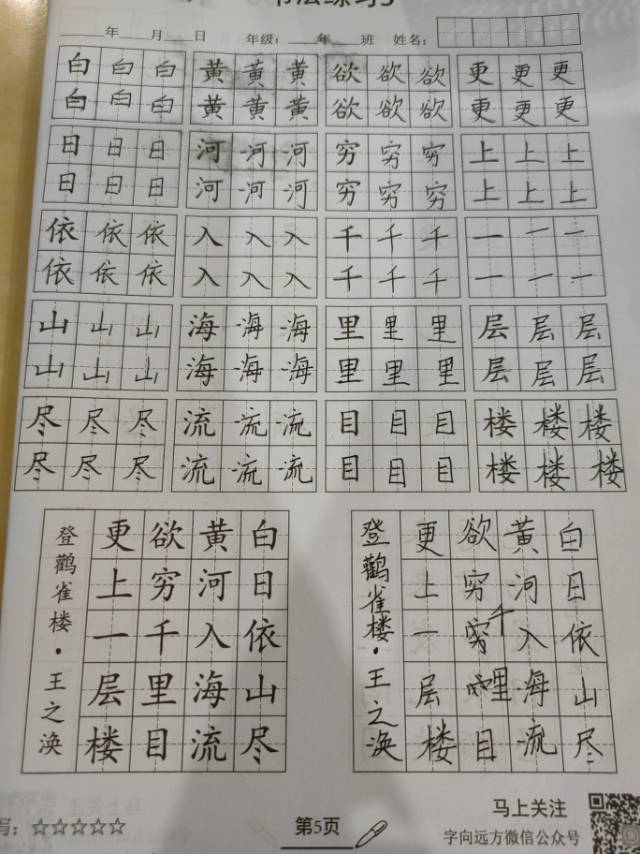 书法练习5
年 月 日 年级: 年 班 姓名:
白 白 白 黄 黄 黄 欲 欲 欲 更 更 更
白 白 白 黄 黄 黄 欲 欲 欲 更 更 更
日 日 日 河 河 河 穷 穷 穷 上 上 上
日 日 日 河 河 河 穷 穷 穷 上 上 上
依 依 依 入 入 入 千 千 千 一 一 一
依 依 依 入 入 入 千 千 千 一 一 一
山 山 山 海 海 海 里 里 里 层 层 层
山 山 山 海 海 海 里 里 里 层 层 层
尽 尽 尽 流 流 流 目 目 目 楼 楼 楼
尽 尽 尽 流 流 流 目 目 目 楼 楼 楼
白日依山尽
黄河入海流
欲穷千里目
更上一层楼
登鹳雀楼·王之涣
白日依山尽
黄河入海流
欲穷千里目
更上一层楼
登鹳雀楼·王之涣
写:☆☆☆☆☆
第5页
马上关注
字向远方微信公众号